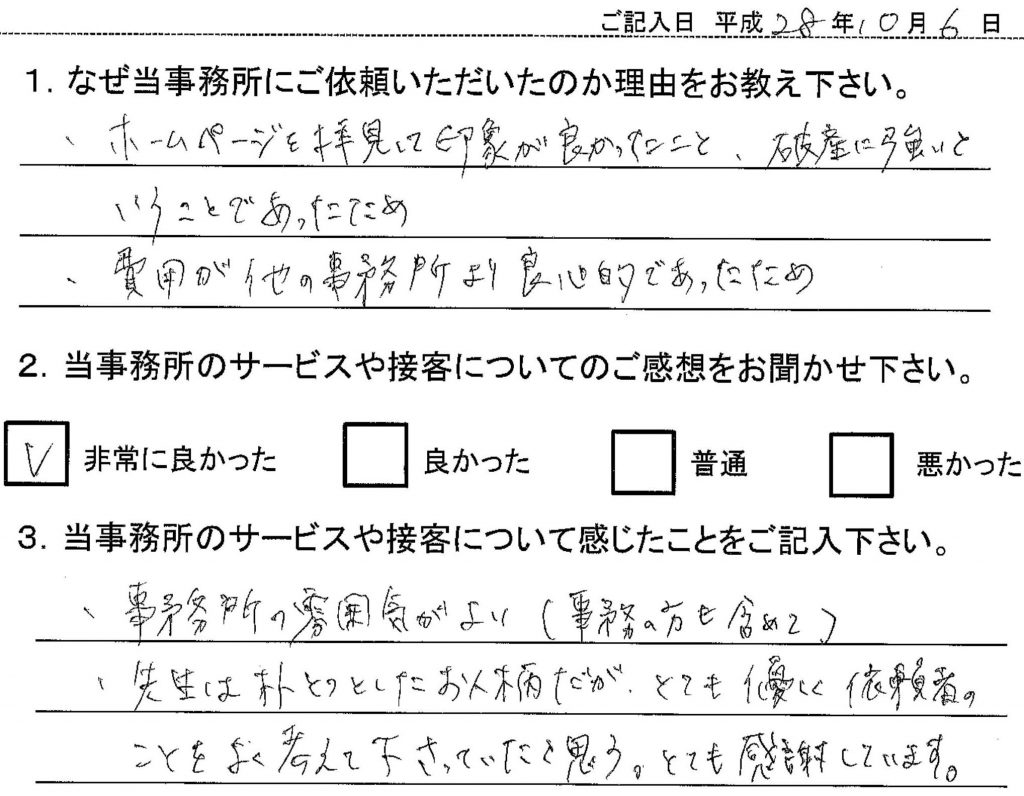 ご記入日 平成28年10月6日
1. なぜ当事務所にご依頼いただいたのか理由をお教え下さい。
、ホームページを拝見して印象が良かったこと、破産に強いと
いうことであったため
、費用が他の事務所より良心的であったため
2. 当事務所のサービスや接客についてのご感想をお聞かせ下さい。
V 非常に良かった 良かった 普通 悪かった
3. 当事務所のサービスや接客について感じたことをご記入下さい。
、事務所の雰囲気がよい(事務の方も含めて)
、先生は朴とつとしたお人柄だが、とても優しく依頼者の
ことをよく考えて下さっていたと思う。とても感謝しています。